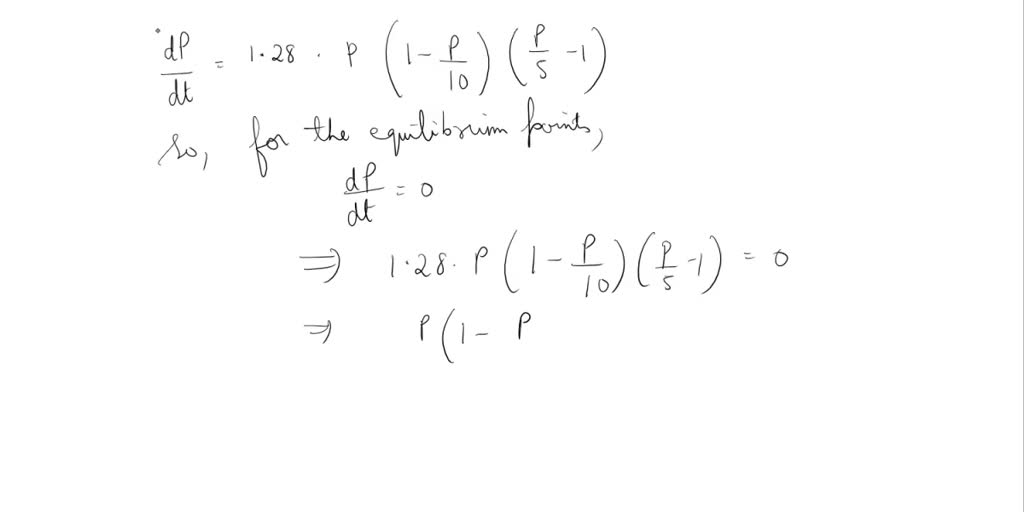 dP/dt = 1.28 · P (1 - P/10) (P/5 - 1)
So, for the equilibrium points,
dP/dt = 0
⇒ 1.28. P (1 - P/10) (P/5 - 1) = 0
⇒ P (1 - P